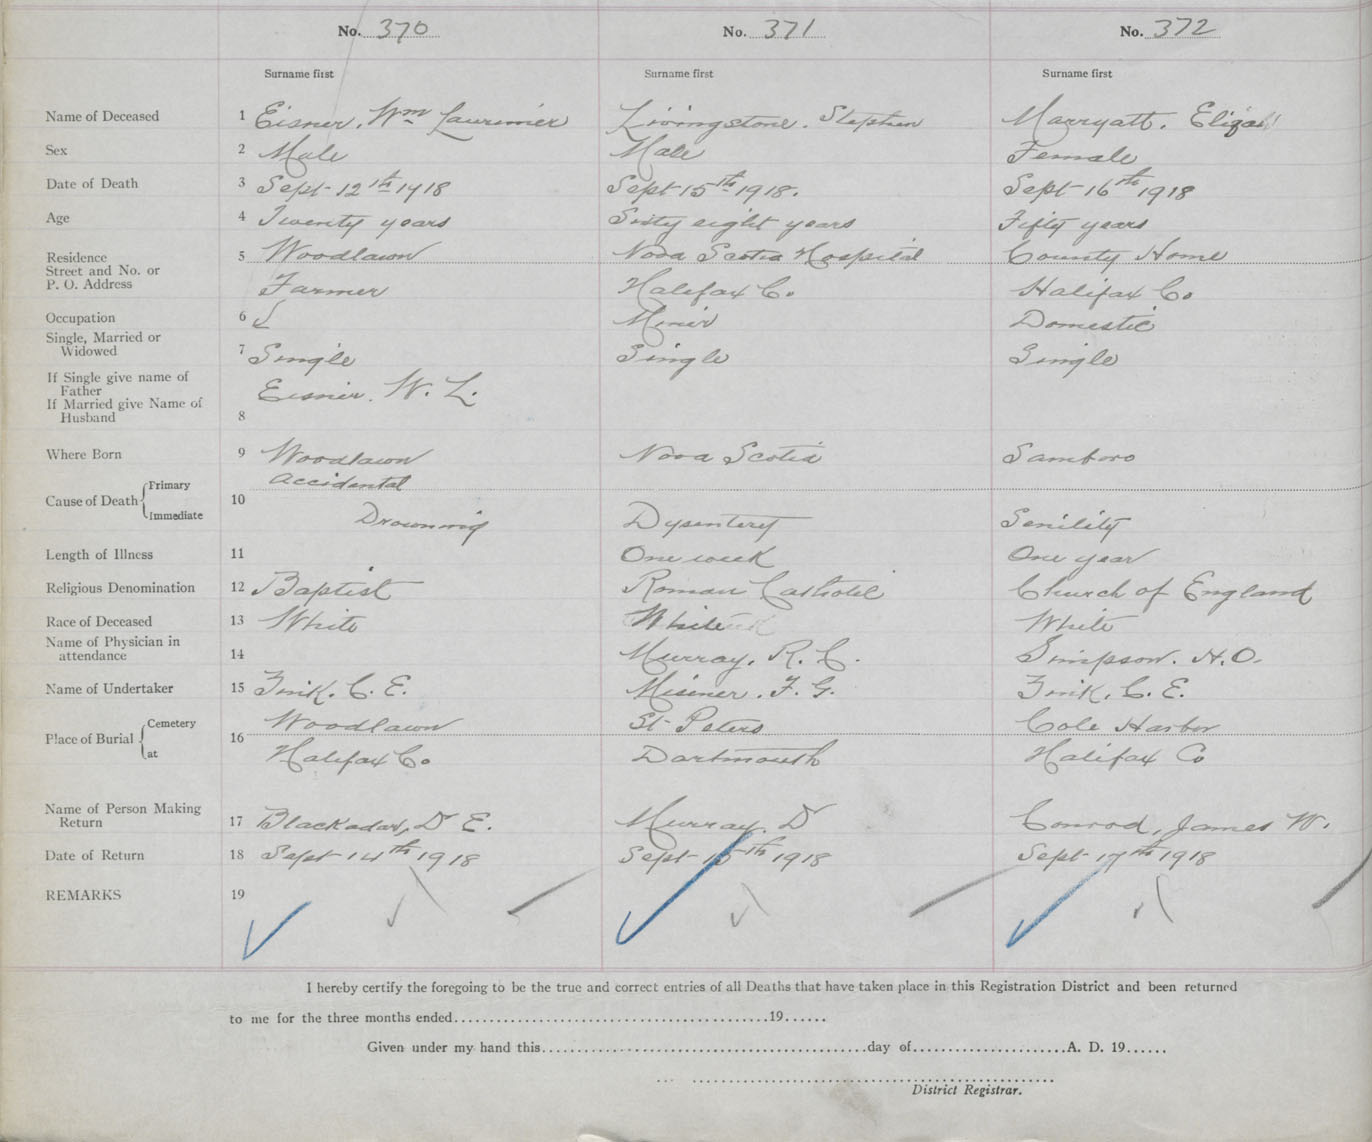 No. 370 No. 371 No. 372
Surname first Surname first Surname first
Name of Deceased 1 Eisner, Wm Laurimier Livingstone. Stephen Marryatt. Eliza
Sex 2 Male Male Female
Date of Death 3 Sept 12th 1918 Sept 15th 1918. Sept 16th 1918
Age 4 Twenty years Sixty eight years Fifty years
Residence 5 Woodlawn Nova Scotia Hospital County Home
Street and No. or
P. O. Address Farmer Halifax Co. Halifax Co
Occupation 6 Miner Domestic
Single, Married or
Widowed 7 Single Single Single
If Single give name of
Father Eisner. W. L.
If Married give Name of
Husband 8
Where Born 9 Woodlawn Nova Scotia Sambro
Cause of Death Primary 10 Accidental
Immediate Drowning Dysentery Senility
Length of Illness 11 One week One year
Religious Denomination 12 Baptist Roman Catholic Church of England
Race of Deceased 13 White White White
Name of Physician in
attendance 14 Murray, R. C. Simpson. H. O.
Name of Undertaker 15 Zink. C. E. Misener. F. G. Zink, C. E.
Place of Burial Cemetery 16 Woodlawn St Peters Cole Harbor
at Halifax Co Dartmouth Halifax Co
Name of Person Making
Return 17 Blackadar, D E. Murray. D Conrod, James W.
Date of Return 18 Sept 14th 1918 Sept 15th 1918 Sept 17th 1918
REMARKS 19
I hereby certify the foregoing to be the true and correct entries of all Deaths that have taken place in this Registration District and been returned
to me for the three months ended 19
Given under my hand this day of A. D. 19
District Registrar.